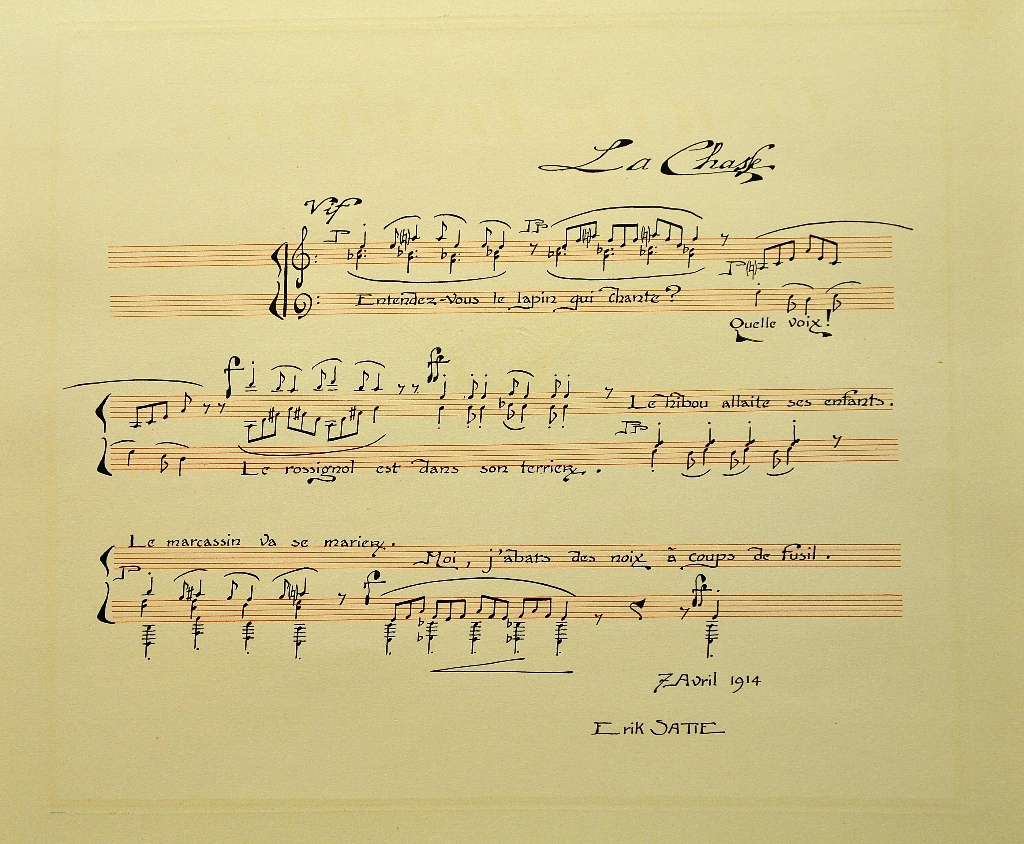 La Chasse
Vif
P PP
Entendez-vous le lapin qui chante ?
P
Quelle voix !
f ff
Le hibou allaite ses enfants.
PP
Le rossignol est dans son terrier.
Le marcassin va se marier.
Moi, j'abats des noix à coups de fusil.
P f ff
7 Avril 1914
Erik SATIE